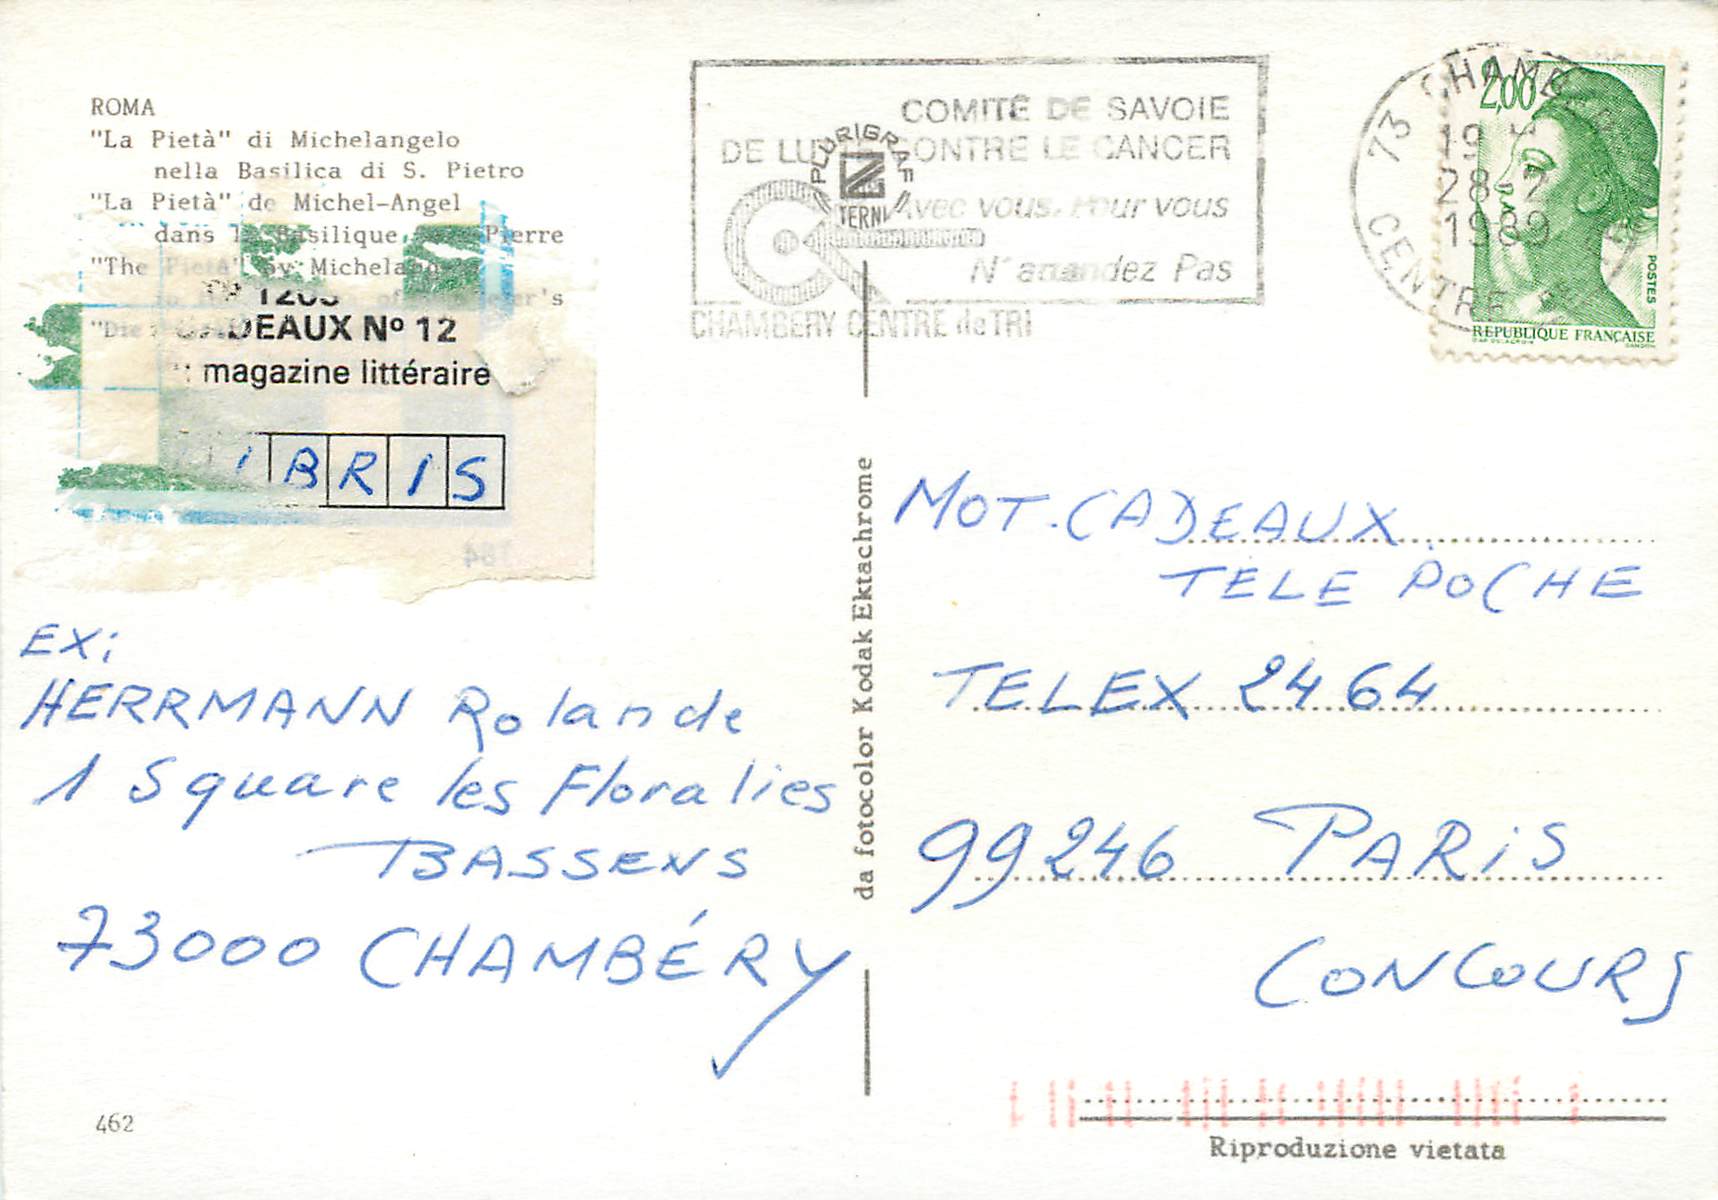 ROMA
"La Pietà" di Michelangelo
nella Basilica di S. Pietro
"La Pietà" de Michel-Angel
dans Basilique Pierre
"The Pietà" by
of
"Die
CADEAUX Nº 12
magazine littéraire
BRIS
184
EX:
HERRMANN Rolande
1 Square les Floralies
BASSENS
73000 CHAMBÉRY
462
da fotocolor Kodak Ektachrome
COMITÉ DE SAVOIE
DE LUTTE CONTRE LE CANCER
Avec vous, Pour vous
N'attendez Pas
CHAMBERY CENTRE de TRI
PLURIGRAF
TERNI
73 CHAMBERY
19 H
28-2
1989
CENTRE DE
2,00
POSTES
REPUBLIQUE FRANÇAISE
MOT.CADEAUX
TELE POCHE
TELEX 2464
99246 PARIS
CONCOURS
Riproduzione vietata